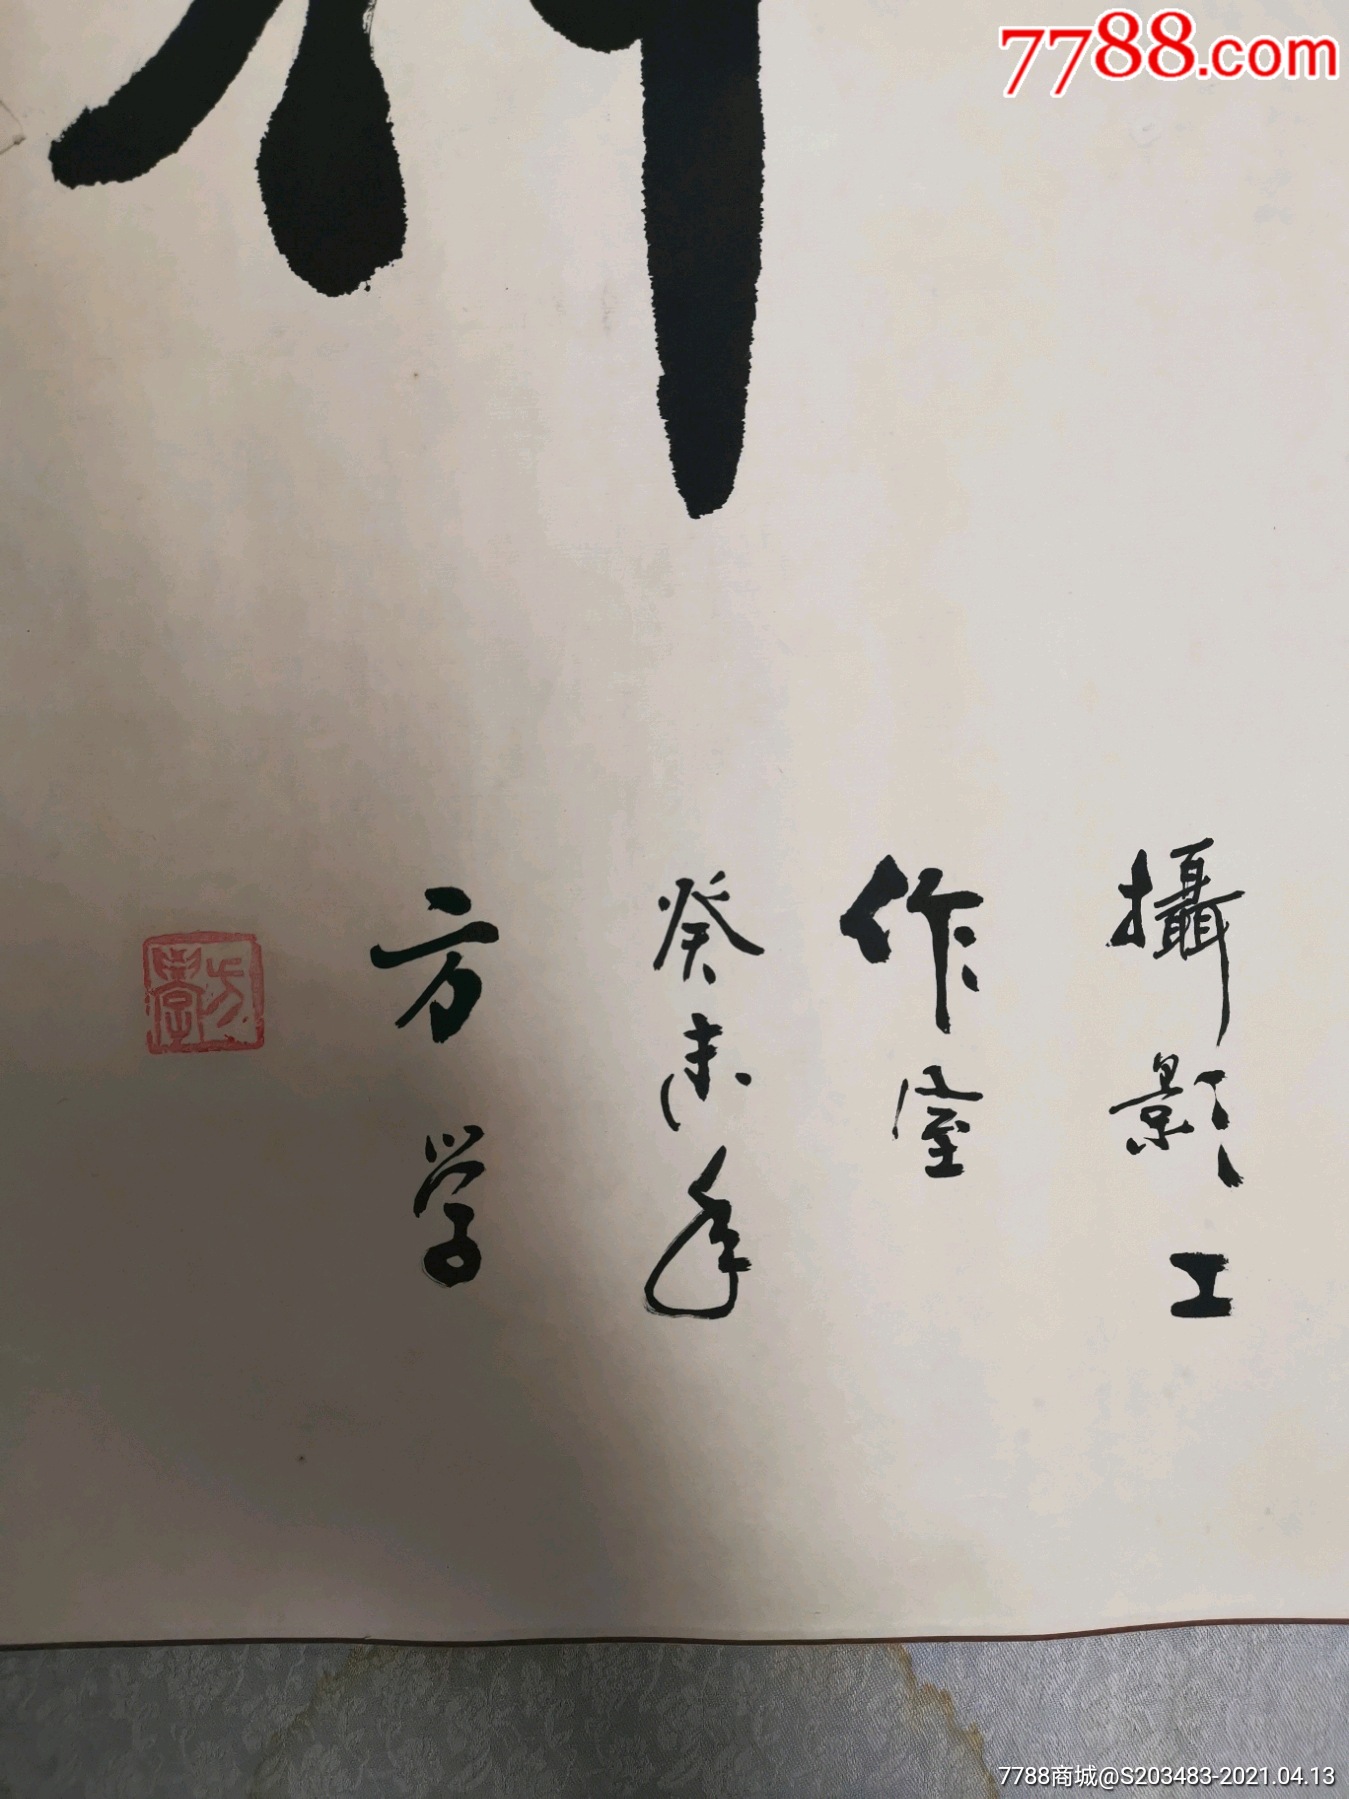 7788.com
攝影工
作室
癸未年
方学
方學
7788商城@S203483-2021.04.13